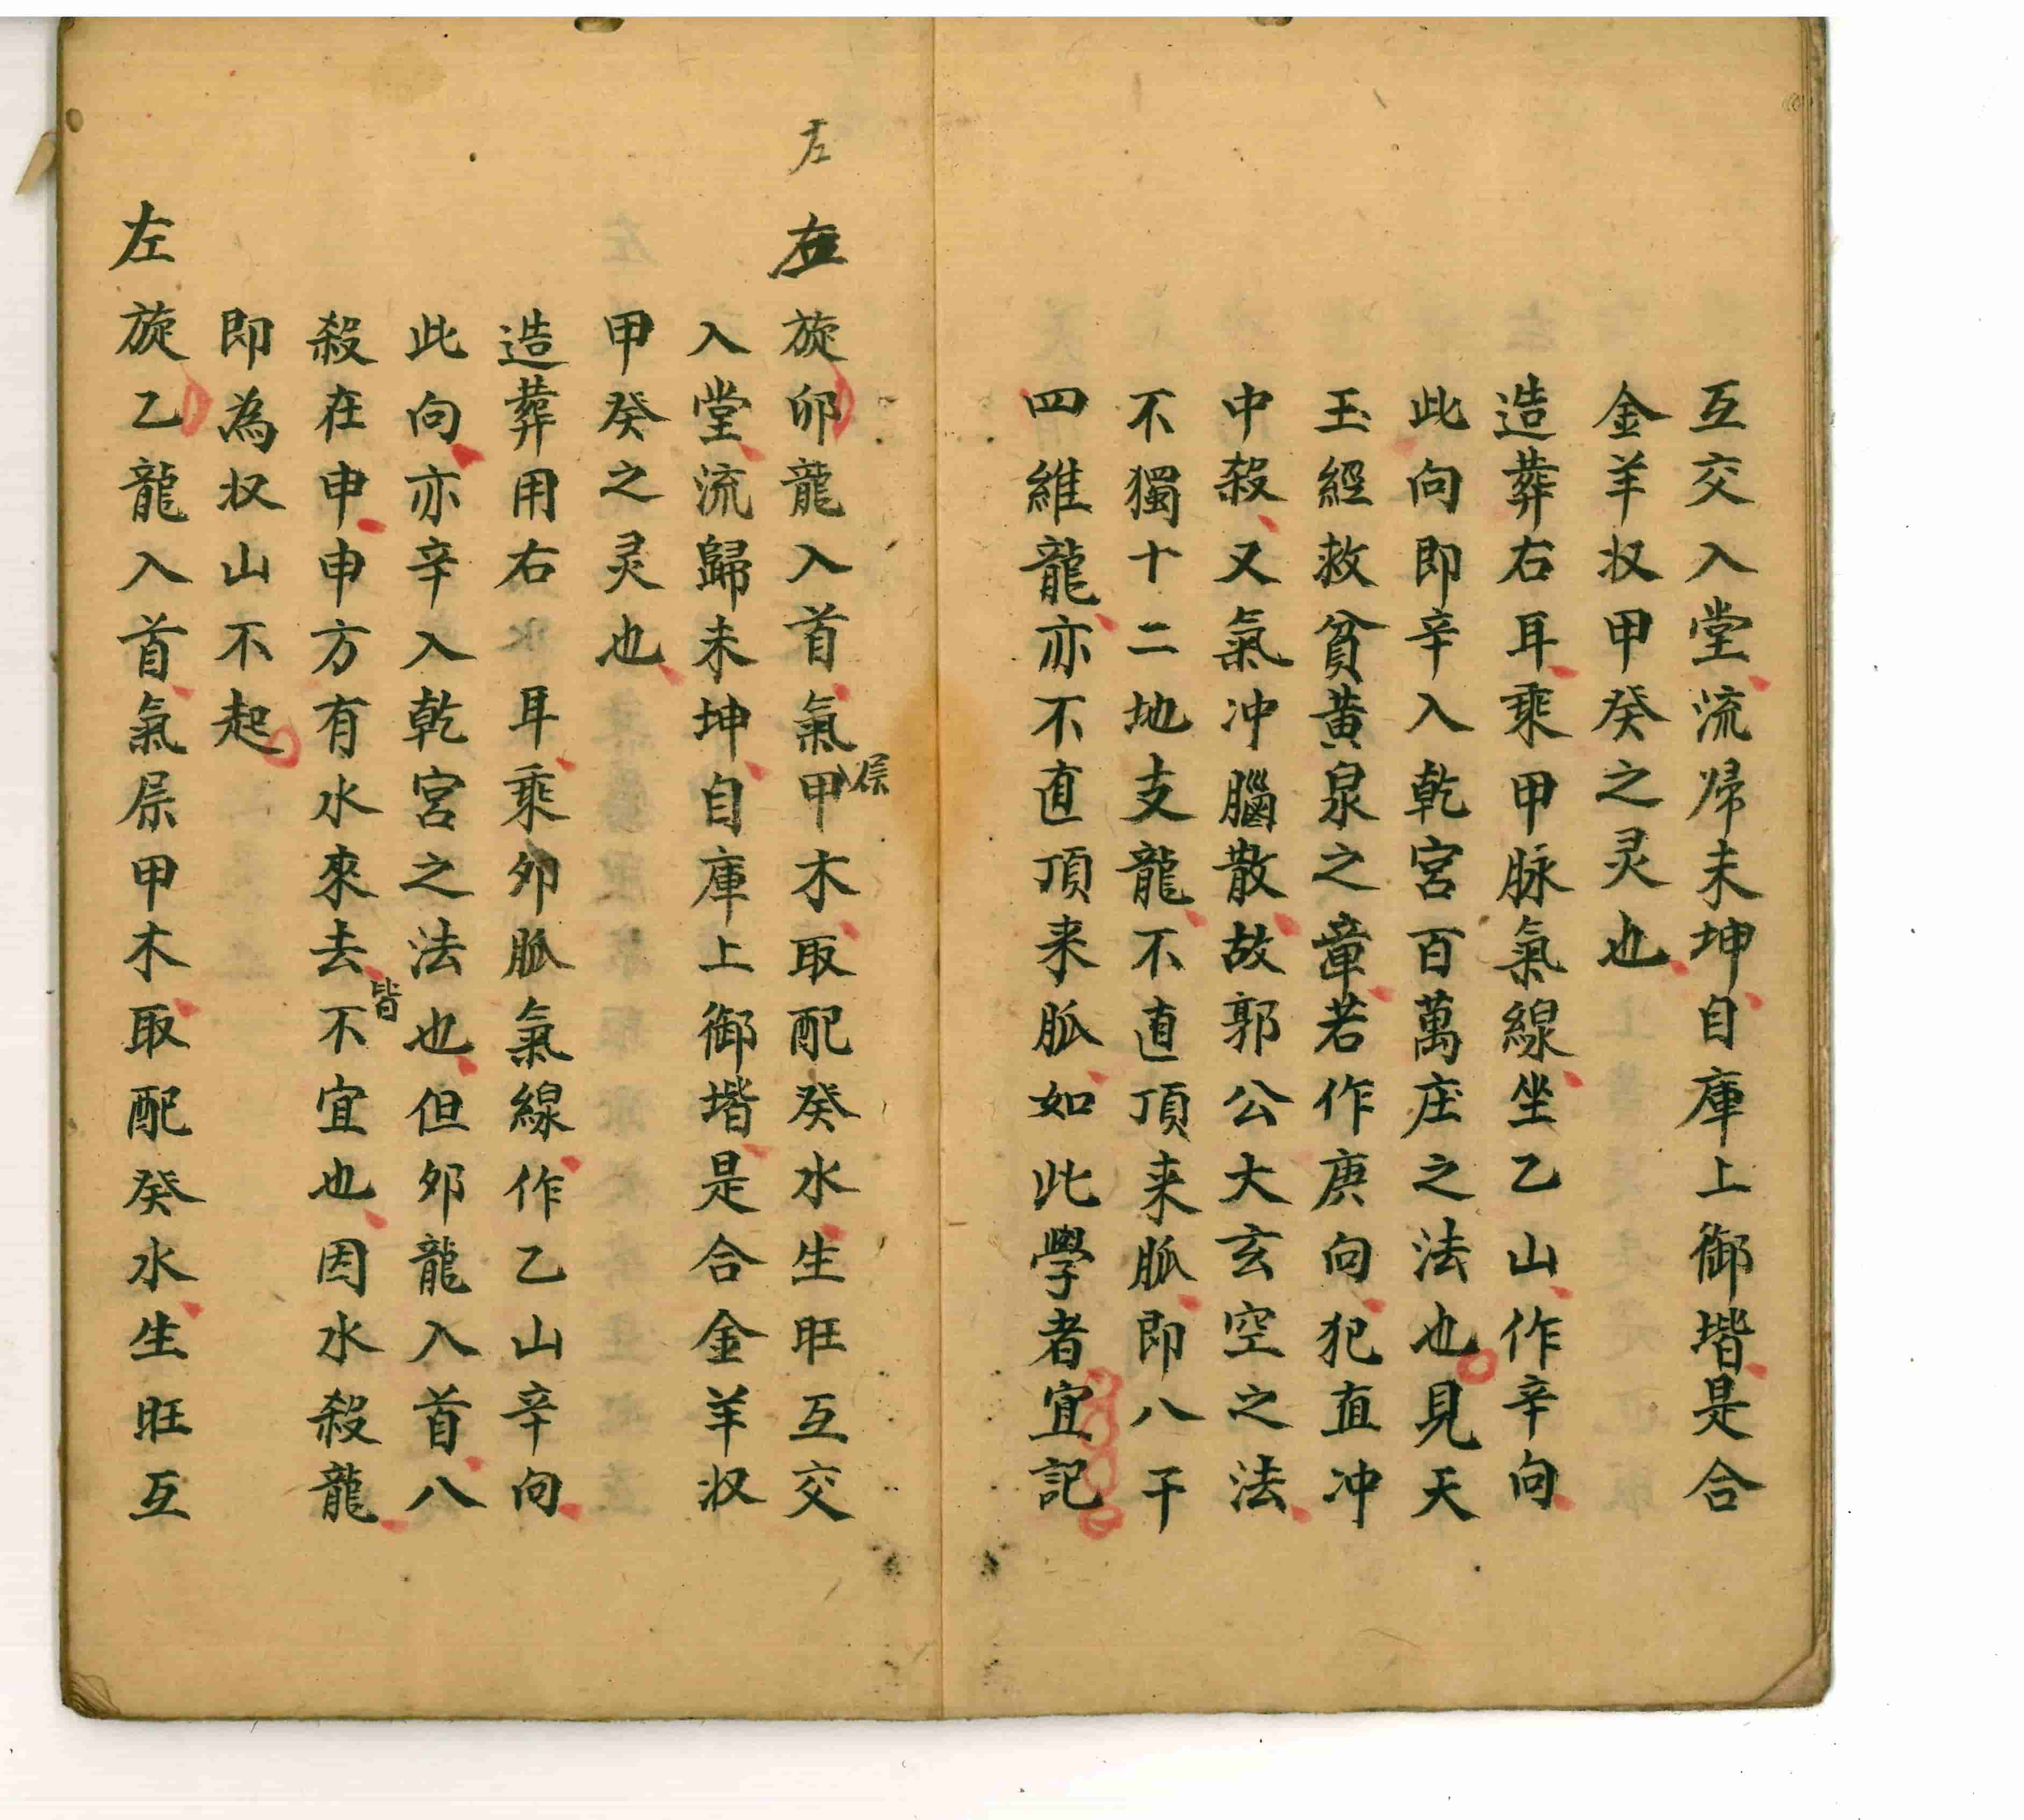 互交入堂流帰未坤自庫上御堦是合
金羊収甲癸之灵也
造葬右耳乘甲脉氣線坐乙山作辛向
此向即辛入乾宮百萬庄之法也見天
玉經救貧黃泉之章若作庚向犯直冲
中殺又氣冲腦散故郭公大玄空之法
不獨十二地支龍不直頂来脈即八干
四維龍亦不直頂来脈如此學者宜記
左
旋卯龍入首氣甲木取配癸水生旺互交
屎
入堂流歸未坤自庫上御堦是合金羊収
甲癸之灵也
造葬用右耳乘夘脈氣線作乙山辛向
此向亦辛入乾宮之法也但夘龍入首八
殺在申申方有水來去不宜也因水殺龍
皆
即為収山不起
左旋乙龍入首氣屎甲木取配癸水生旺互